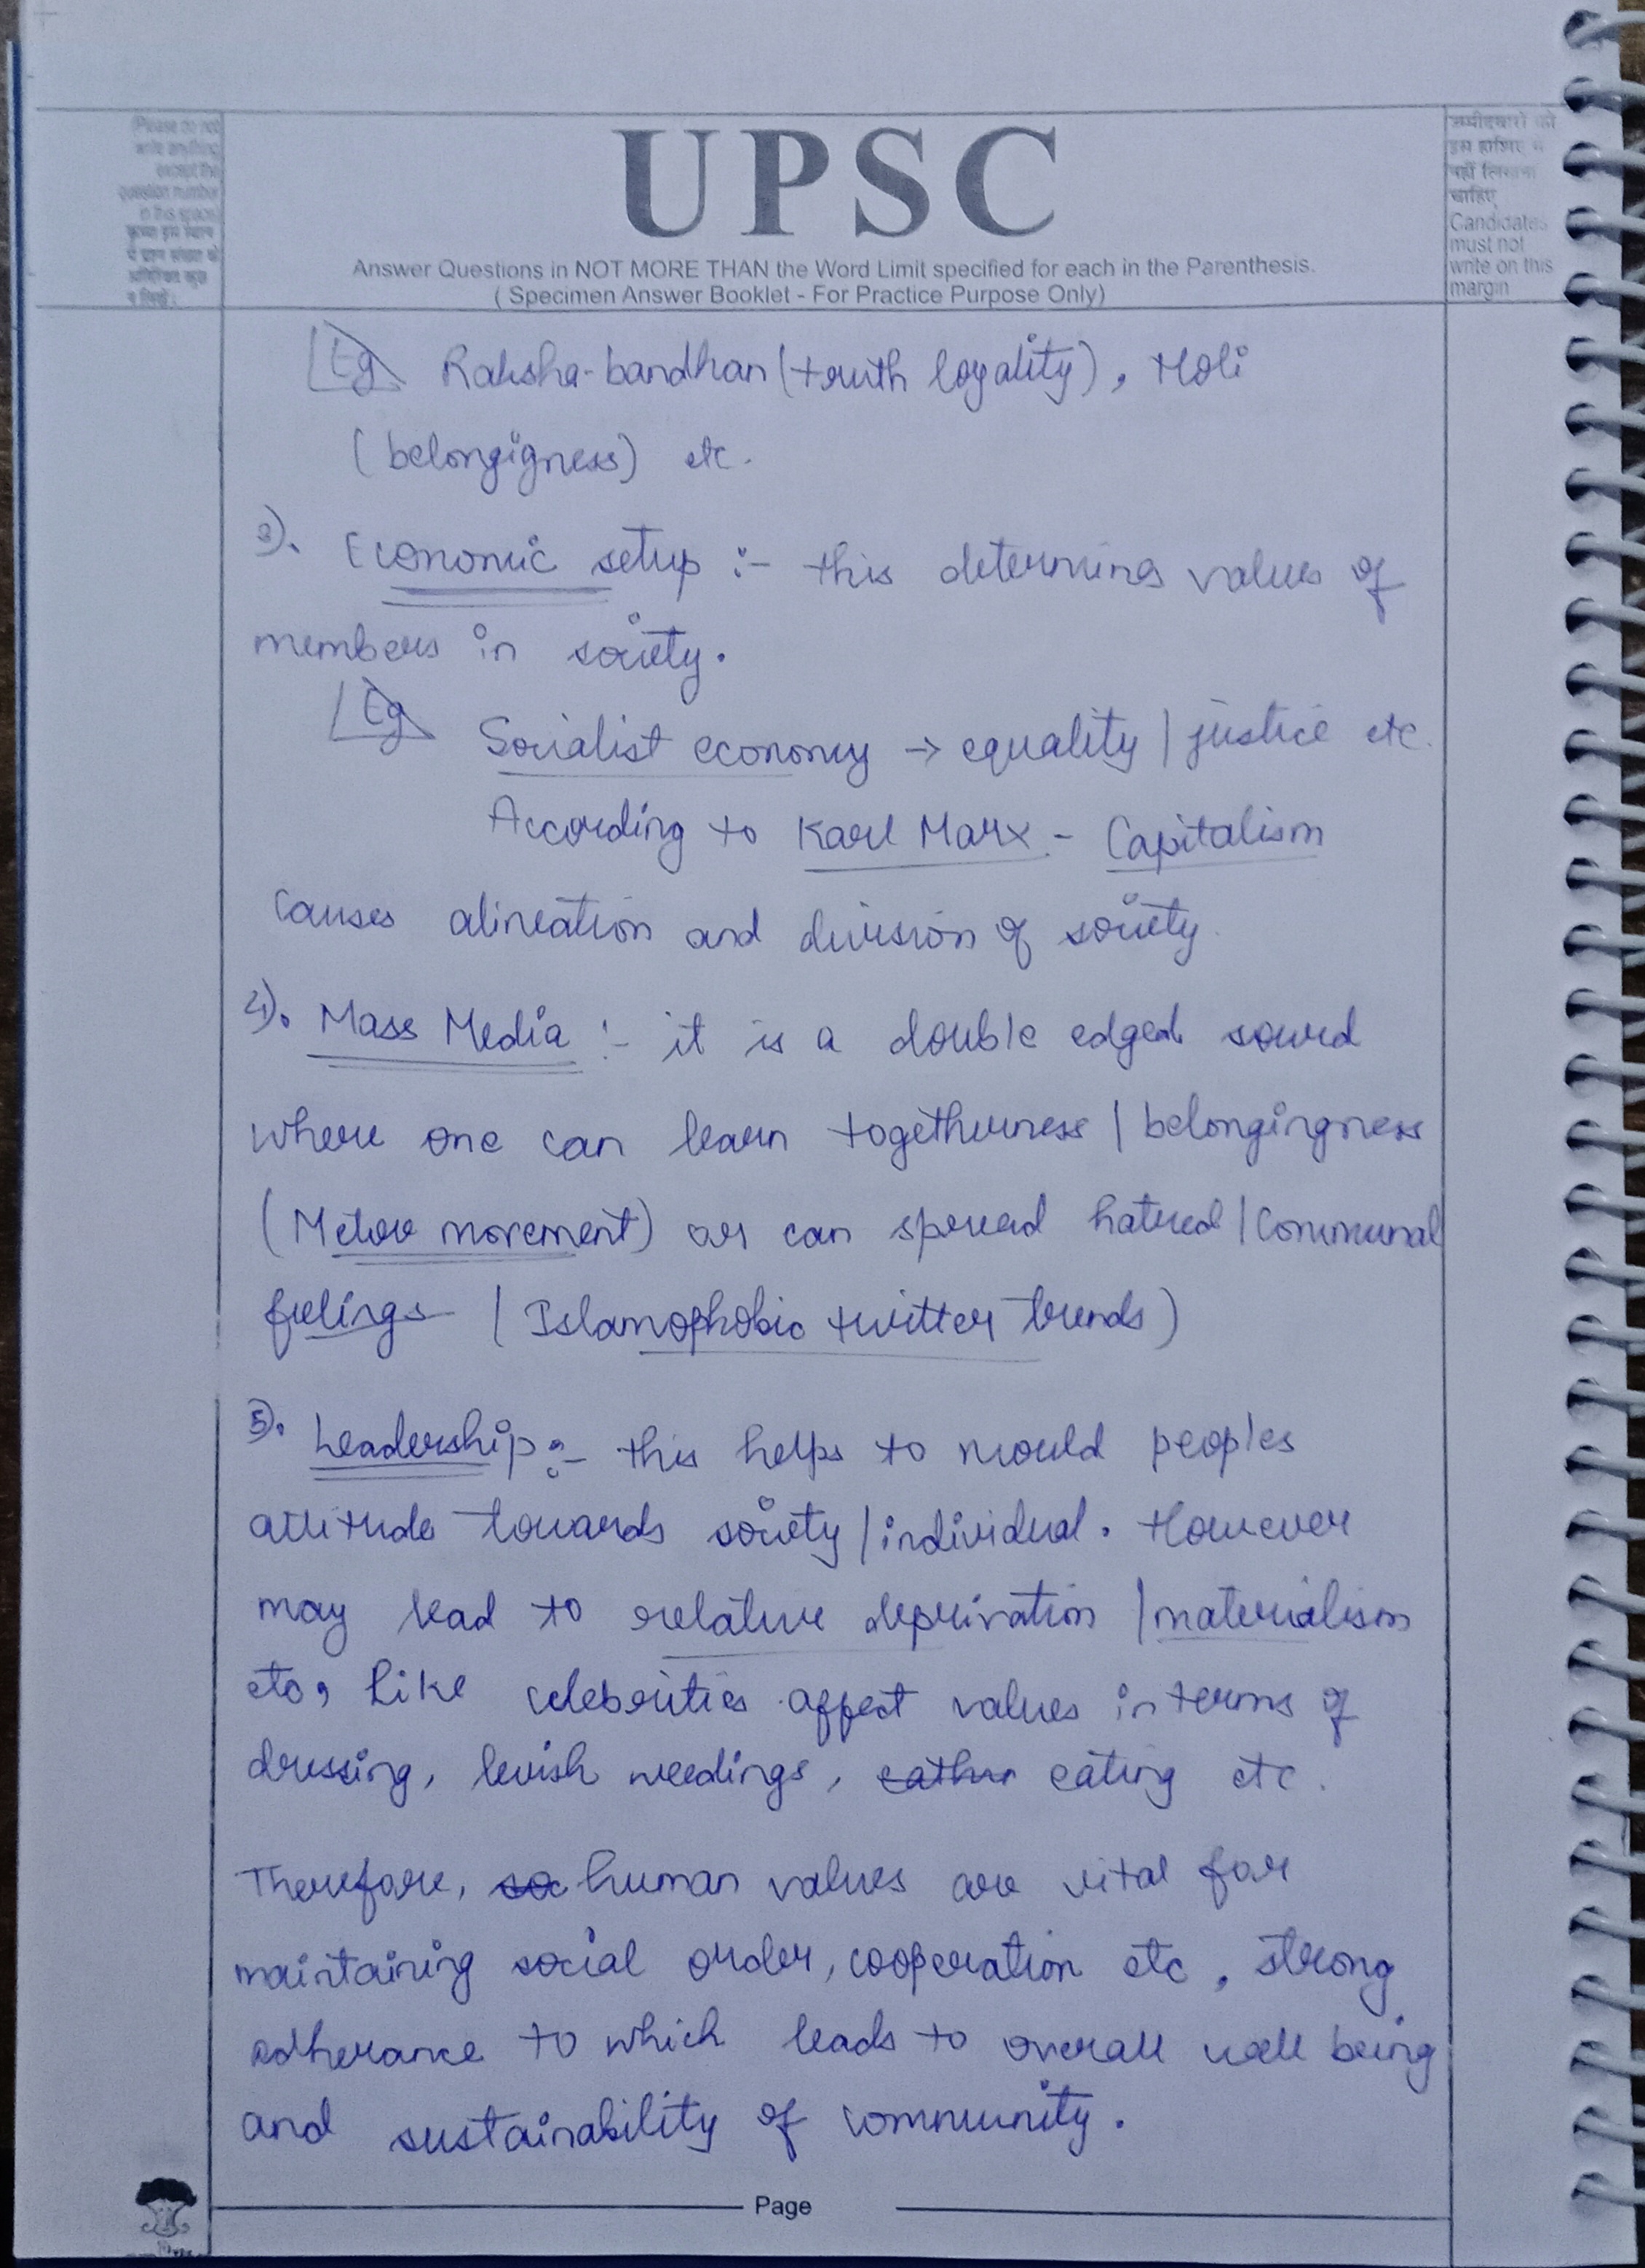 (Please do not
write anything
except the
question number
in this space)
कृपया इस स्थान
में प्रश्न संख्या के
अतिरिक्त कुछ
न लिखें।
UPSC
Answer Questions in NOT MORE THAN the Word Limit specified for each in the Parenthesis.
( Specimen Answer Booklet - For Practice Purpose Only)
उम्मीदवारों को
इस हाशिए में
नहीं लिखना
चाहिए
Candidates
must not
write on this
margin
Eg Raksha-bandhan (truth loyality), Holi
(belongigness) etc.
3). Economic setup :- this determines values of
members in society.
Eg Socialist economy → equality / justice etc.
According to Karl Marx - Capitalism
causes alineation and division of society.
4). Mass Media :- it is a double edged sword
where one can learn togetherness / belongingness
(Metoo movement) or can spread hatred / communal
feelings (Islamophobic twitter trends)
5). Leadership :- this helps to mould peoples
attitude towards society / individual. However
may lead to relative deprivation / materialism
etc, like celebrities affect values in terms of
dressing, levish weedings, eating etc.
Therefore, human values are vital for
maintaining social order, cooperation etc, strong
adherance to which leads to overall well being
and sustainability of community.
Page